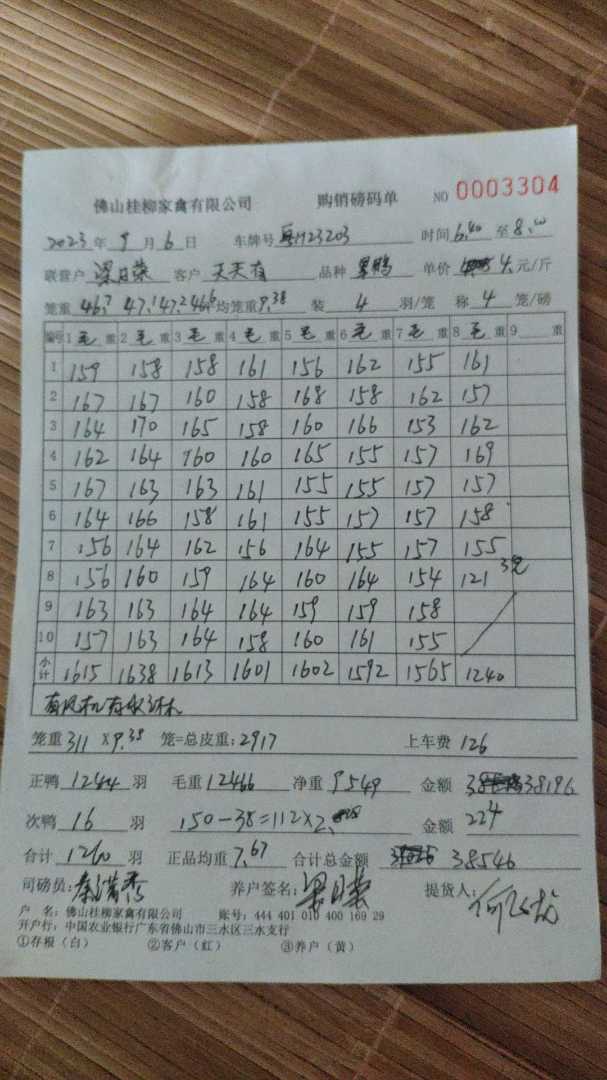 佛山桂柳家禽有限公司 购销磅码单 NO 0003304
2023年9月6日 车牌号 粤H23203 时间 6.40 至 8.00
联营户 梁日荣 客户 天天有 品种 单价 4. 元/斤
笼重 46.7 47.1 47.2 46.6 均笼重 9.38 装 4 羽/笼 称 4 笼/磅
编号 1 毛 重 2 毛 重 3 毛 重 4 毛 重 5 毛 重 6 毛 重 7 毛 重 8 毛 重 9 重
1 159 158 158 161 156 162 155 161
2 167 167 160 158 168 158 162 157
3 164 170 165 158 160 166 153 162
4 162 164 160 160 165 155 157 169
5 167 163 163 161 155 155 157 157
6 164 166 158 161 155 157 157 158
7 156 164 162 156 164 155 157 155
8 156 160 159 164 160 164 154 121 3笼
9 163 163 164 164 159 159 158
10 157 163 164 158 160 161 155
小计 1615 1638 1613 1601 1602 1592 1565 1240
有风机有水
笼重 311 X 9.38 笼=总皮重: 2917 上车费 126
正鸭 1244 羽 毛重 12466 净重 9549 金额 38196
次鸭 16 羽 150-38=112X2. 金额 224
合计 1260 羽 正品均重 7.67 合计总金额 38546
司磅员: 养户签名: 梁日荣 提货人:
户 名: 佛山桂柳家禽有限公司 账号: 444 401 010 400 169 29
开户行: 中国农业银行广东省佛山市三水区三水支行
①存根（白） ②客户（红） ③养户（黄）